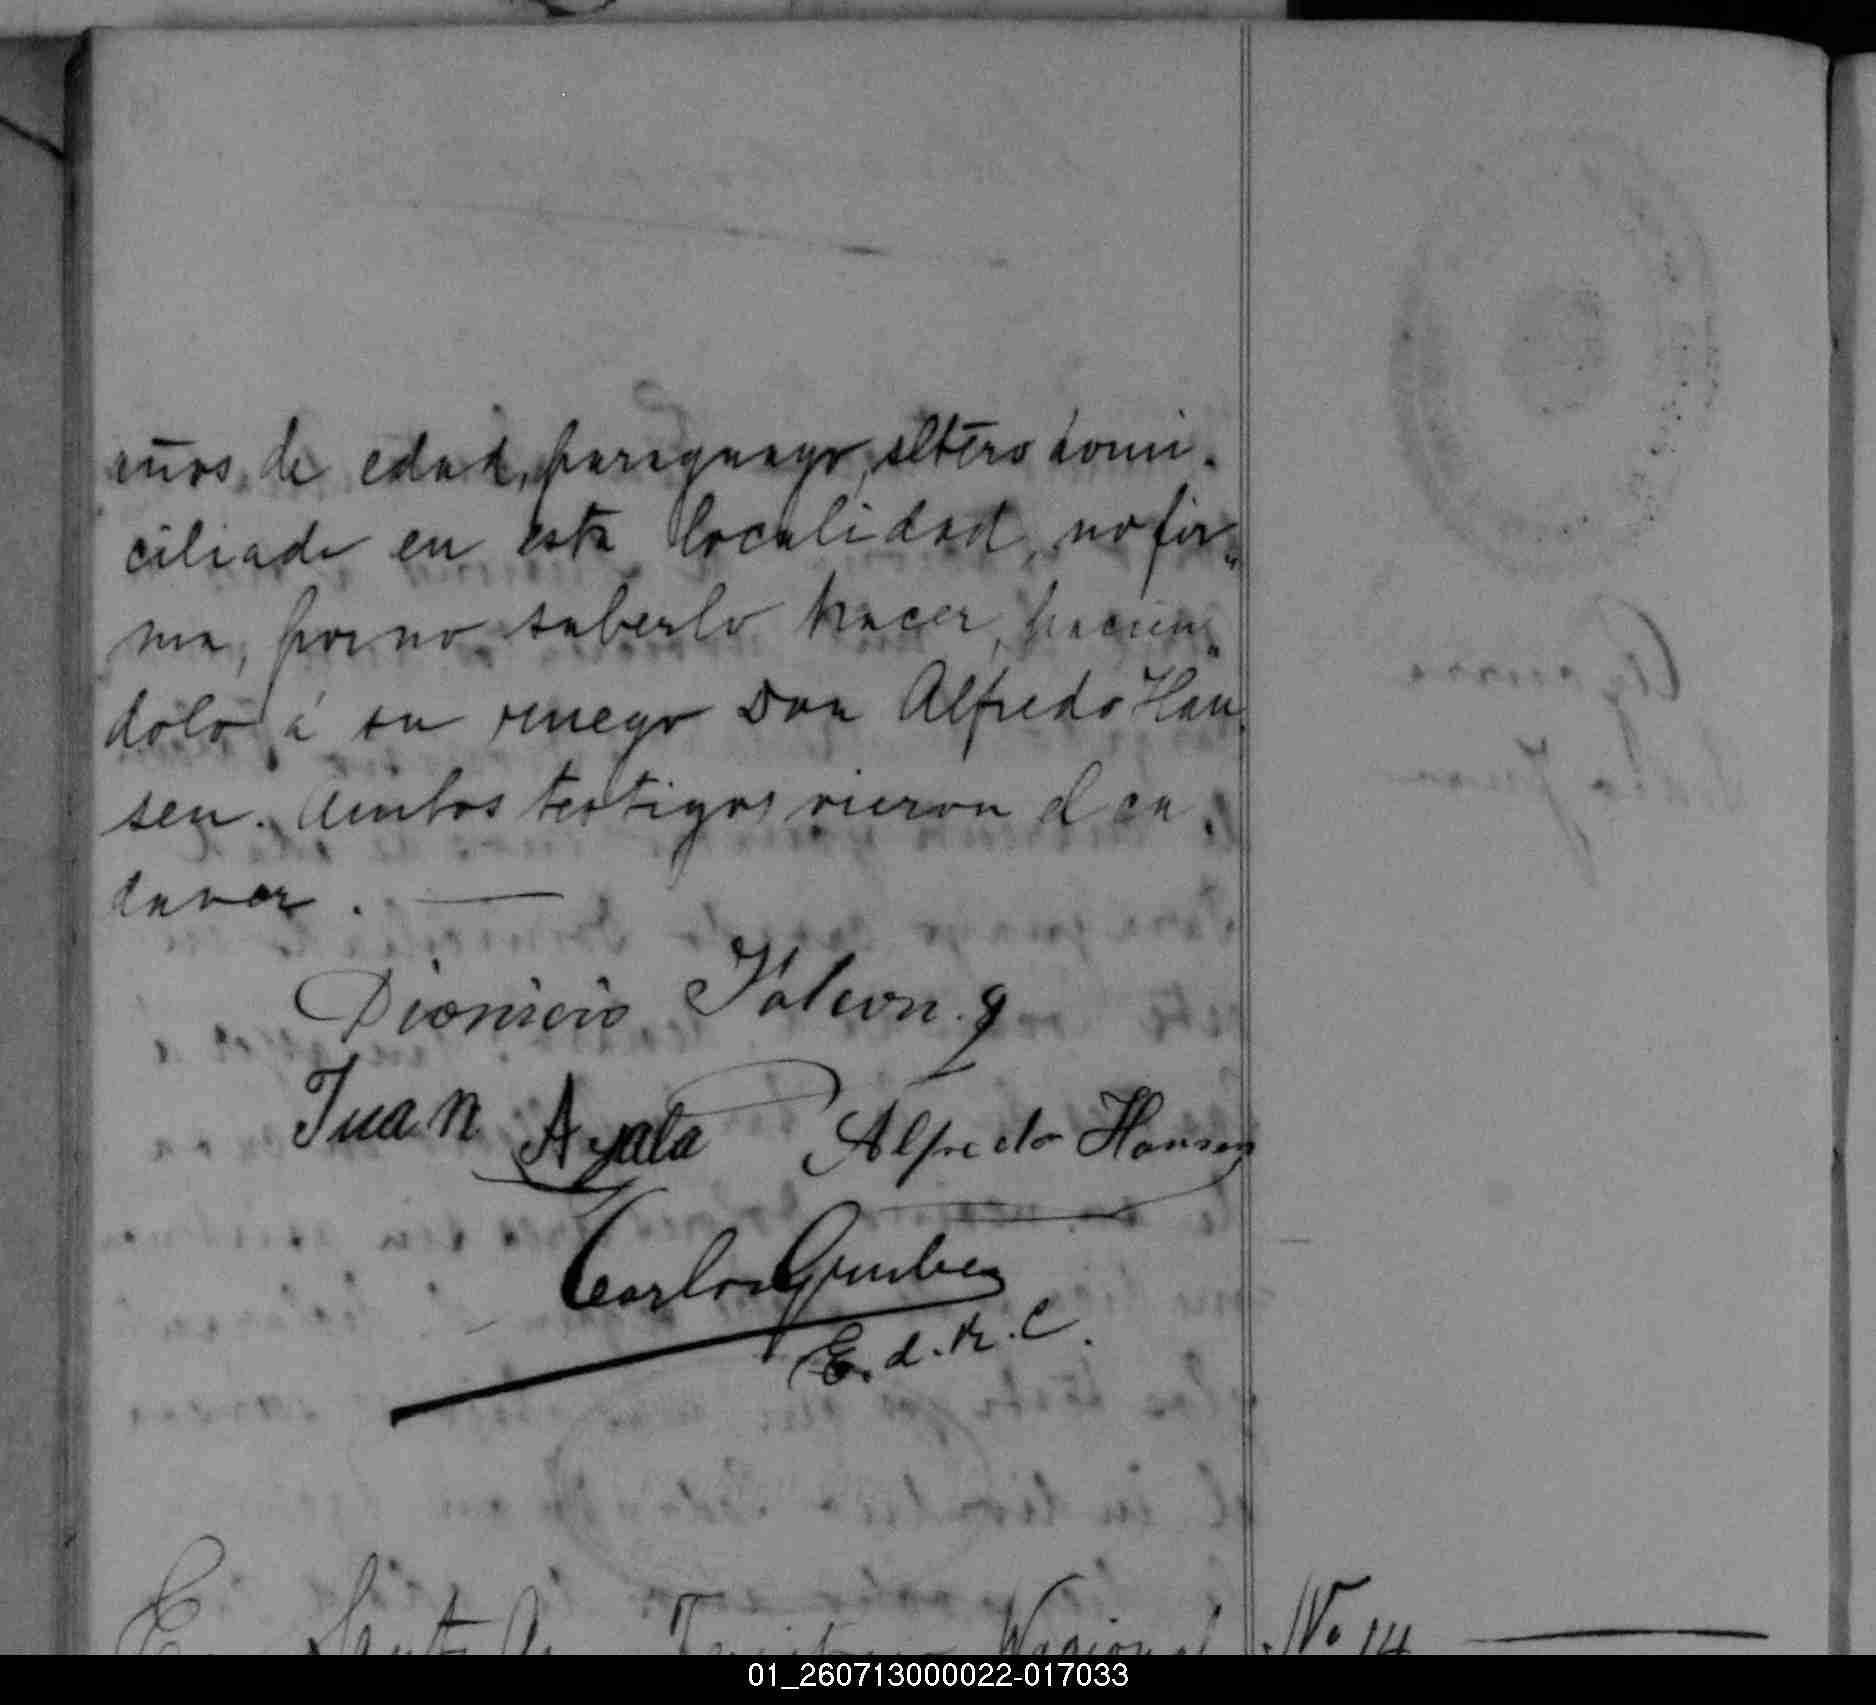 años de edad, paraguayo, soltero domi-
ciliado en esta localidad, no fir-
ma, por no saberlo hacer, hacien-
dolo á su ruego Don Alfredo Han
sen. Ambos testigos vieron el ca
daver.
Dionicio Falcon.
Juan Ayala Alfredo Hansen
Carlos
E. d. R. C.
En Santa Ana Territorio Nacional No 14
01_260713000022-017033